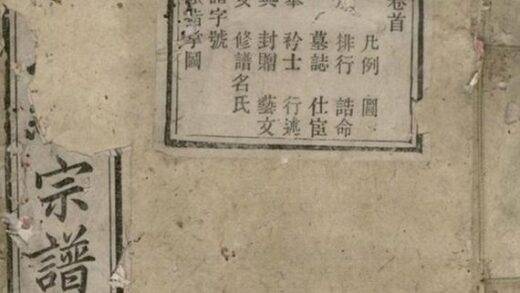 卷首
凡例 圖
排行 誥命
墓誌 仕宦
衿士 行述
封贈 藝文
修譜名氏
字號
圖
宗譜